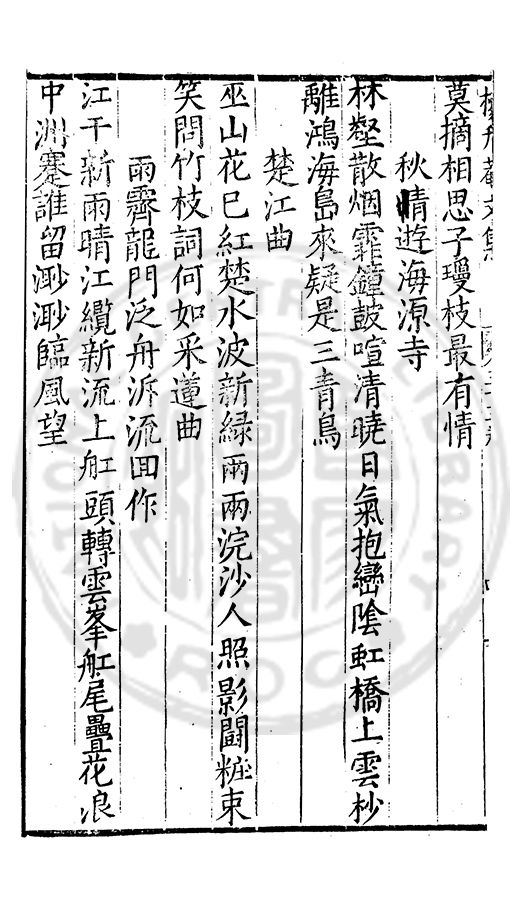 莫摘相思子瓊枝最有情
秋晴遊海源寺
林壑散烟霏鐘皷喧清曉日氣抱巒陰虹橋上雲杪
離鴻海島來疑是三青鳥
楚江曲
巫山花巳紅楚水波新緑兩兩浣沙人照影鬪粧束
笑問竹枝詞何如采蓮曲
雨霽龍門泛舟泝流回作
江干新雨晴江纜新流上舡頭轉雲峯舡尾疊花浪
中洲蹇誰留渺渺臨風望